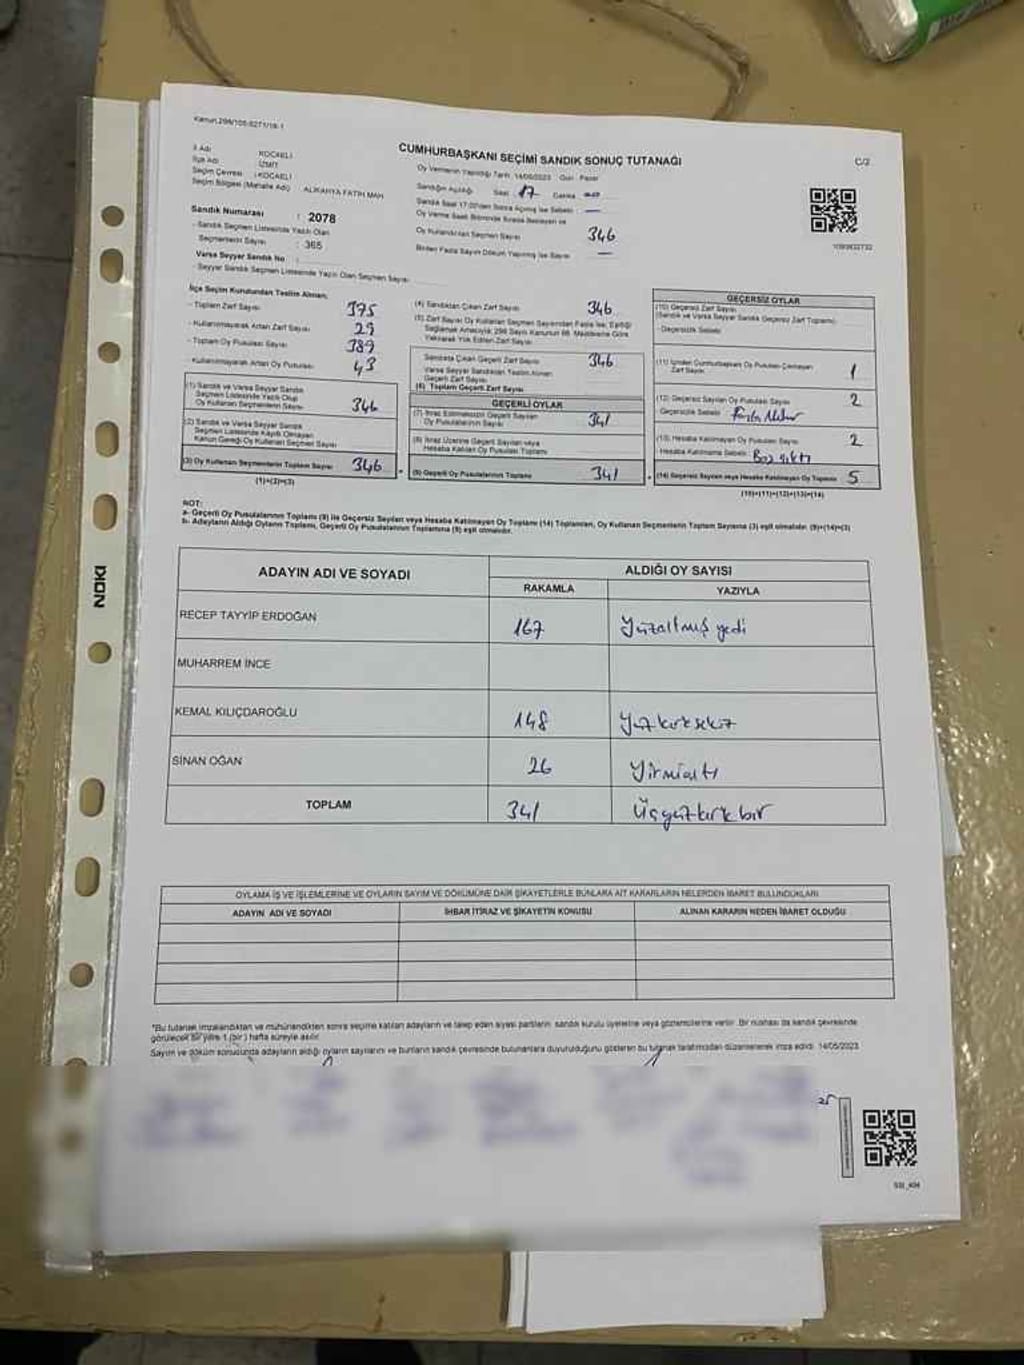 Kanun,298/105-5271/16-1
CUMHURBAŞKANI SEÇİMİ SANDIK SONUÇ TUTANAĞI
C/2
İl Adı KOCAELİ
İlçe Adı İZMİT
Seçim Çevresi : KOCAELİ
Seçim Bölgesi (Mahalle Adı) ALİKAHYA FATİH MAH
Oy Vermenin Yapıldığı Tarih 14/05/2023 Gün Pazar
Sandığın Açıldığı Saat 17 Dakika
Sandık Saat 17:00'den Sonra Açılmış İse Sebebi —
Oy Verme Saati Bitiminde Sırada Bekleyen ve
Oy Kullandırılan Seçmen Sayısı 346
Birden Fazla Sayım Döküm Yapılmış İse Sayısı —
Sandık Numarası : 2078
- Sandık Seçmen Listesinde Yazılı Olan
Seçmenlerin Sayısı : 365
Varsa Seyyar Sandık No :
- Seyyar Sandık Seçmen Listesinde Yazılı Olan Seçmen Sayısı
İlçe Seçim Kurulundan Teslim Alınan;
- Toplam Zarf Sayısı 375
- Kullanılmayarak Artan Zarf Sayısı 29
- Toplam Oy Pusulası Sayısı 389
- Kullanılmayarak Artan Oy Pusulası 43
(1) Sandık ve Varsa Seyyar Sandık
Seçmen Listesinde Yazılı Olup
Oy Kullanan Seçmenlerin Sayısı 346
(2) Sandık ve Varsa Seyyar Sandık
Seçmen Listesinde Kayıtlı Olmayan
Kanun Gereği Oy Kullanan Seçmen Sayısı
(3) Oy Kullanan Seçmenlerin Toplam Sayısı 346
(1)+(2)=(3)
(4) Sandıktan Çıkan Zarf Sayısı 346
(5) Zarf Sayısı Oy Kullanan Seçmen Sayısından Fazla İse, Eşitliği
Sağlamak Amacıyla; 298 Sayılı Kanunun 98. Maddesine Göre
Yakılarak Yok Edilen Zarf Sayısı
Sandıkta Çıkan Geçerli Zarf Sayısı 346
Varsa Seyyar Sandıktan Teslim Alınan
Geçerli Zarf Sayısı
(6) Toplam Geçerli Zarf Sayısı
GEÇERLİ OYLAR
(7) İtiraz Edilmeksizin Geçerli Sayılan
Oy Pusulalarının Sayısı 341
(8) İtiraz Üzerine Geçerli Sayılan veya
Hesaba Katılan Oy Pusulaları Toplamı
(9) Geçerli Oy Pusulalarının Toplamı 341
GEÇERSİZ OYLAR
(10) Geçersiz Zarf Sayısı
(Sandık ve Varsa Seyyar Sandık Geçersiz Zarf Toplamı)
- Geçersizlik Sebebi
(11) İçinden Cumhurbaşkanı Oy Pusulası Çıkmayan
Zarf Sayısı 1
(12) Geçersiz Sayılan Oy Pusulası Sayısı 2
Geçersizlik Sebebi
(13) Hesaba Katılmayan Oy Pusulası Sayısı 2
- Hesaba Katılmama Sebebi Boş çıktı
(14) Geçersiz Sayılan veya Hesaba Katılmayan Oy Toplamı 5
(10)+(11)+(12)+(13)=(14)
NOT:
a- Geçerli Oy Pusulalarının Toplamı (9) ile Geçersiz Sayılan veya Hesaba Katılmayan Oy Toplamı (14) Toplamları, Oy Kullanan Seçmenlerin Toplam Sayısına (3) eşit olmalıdır. (9)+(14)=(3)
b- Adayların Aldığı Oyların Toplamı, Geçerli Oy Pusulalarının Toplamına (9) eşit olmalıdır.
ADAYIN ADI VE SOYADI
ALDIĞI OY SAYISI
RAKAMLA YAZIYLA
RECEP TAYYİP ERDOĞAN 167 Yüzaltmış yedi
MUHARREM İNCE
KEMAL KILIÇDAROĞLU 148 Yüzkırksekiz
SİNAN OĞAN 26 Yirmialtı
TOPLAM 341 Üçyüzkırkbir
OYLAMA İŞ VE İŞLEMLERİNE VE OYLARIN SAYIM VE DÖKÜMÜNE DAİR ŞİKAYETLERLE BUNLARA AİT KARARLARIN NELERDEN İBARET BULUNDUKLARI
ADAYIN ADI VE SOYADI İHBAR İTİRAZ VE ŞİKAYETİN KONUSU ALINAN KARARIN NEDEN İBARET OLDUĞU
*Bu tutanak imzalandıktan ve mühürlendikten sonra seçime katılan adayların ve talep eden siyasi partilerin sandık kurulu üyelerine veya gözlemcilerine verilir. Bir nüshası da sandık çevresinde
görülecek bir yere 1 (bir) hafta süreyle asılır.
Sayım ve döküm sonucunda adayların aldığı oyların sayılarını ve bunların sandık çevresinde bulunanlara duyurulduğunu gösteren bu tutanak tarafımızdan düzenlenerek imza edildi. 14/05/2023
NOKI